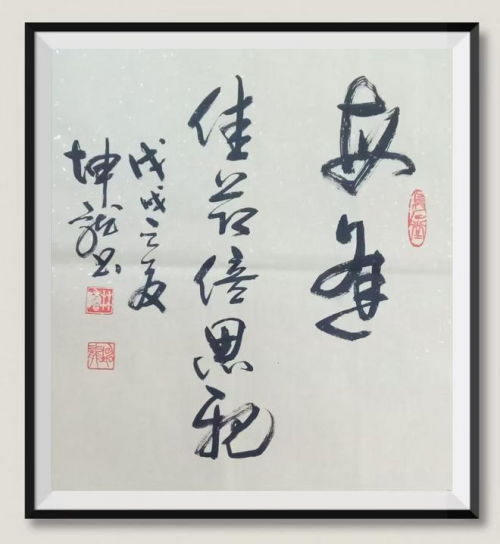 每逢
佳节倍思亲
戊戌之夏
坤龙书